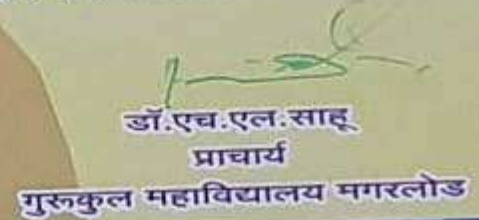 डॉ.एच.एल.साहू
प्राचार्य
गुरूकुल महाविद्यालय मगरलोड